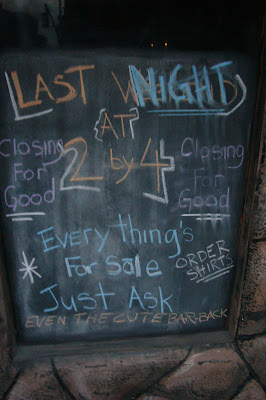 LAST NIGHT
{AT}
2 by 4
Closing
For
Good
Closing
For
Good
Everything's
For Sale
Just Ask
ORDER
SHIRTS
EVEN THE CUTE BAR-BACK